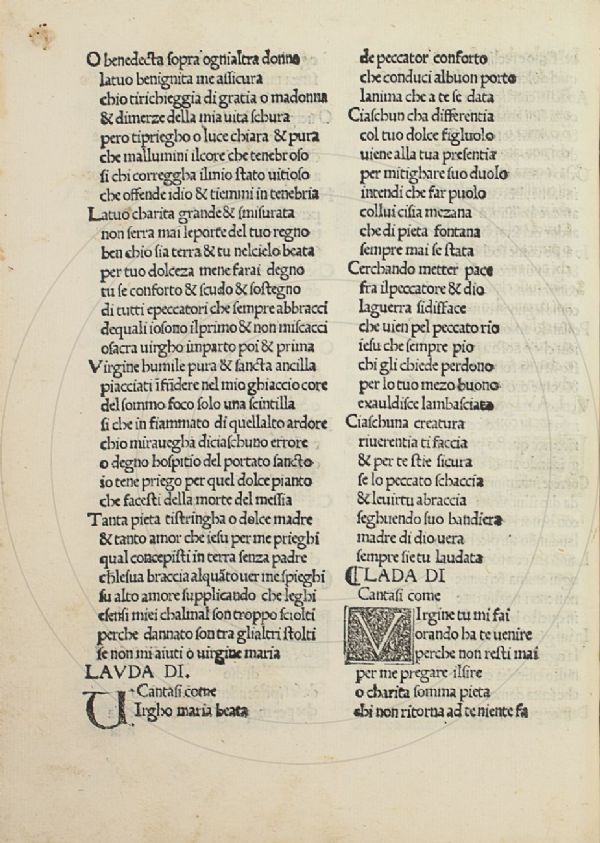 O benedecta sopra ognialtra donno
latuo benignita me assicura
chio tirichieggia di gratia o madonna
& dimerze della mia uita schura
pero tipriegho o luce chiara & pura
che mallumini ilcore che tenebroso
si chi correggha ilmio stato uitioso
che offende idio & tiemmi in tenebria
Latuo charita grande & smisurata
non serra mai leporte del tuo regno
ben chio sia terra & tu nelcielo beata
per tuo dolceza mene farai degno
tu se conforto & scudo & sostegno
di tutti epeccatori che sempre abbracci
dequali iosono ilprimo & non miscacci
osacra uirgho imparto poi & prima
Virgine humile pura & sancta ancilla
piacciati ifūdere nel mio ghiaccio core
del sommo foco solo una scintilla
si che in fiammato di quellalto ardore
chio mirauegha diciaschuno errore
o degno hospitio del portato sancto
io tene priego per quel dolce pianto
che facesti della morte del messia
Tanta pieta tistringha o dolce madre
& tanto amore che iesu per me prieghi
qual concepisti in terra senza padre
chlesua braccia alquāto uer me spieghi
su alto amore supplicando che leghi
esensi miei chalmal son troppo sciolti
perche dannato son tra glialtri stolti
se non mi aiuti o uirgine maria
LAVDA DI.
Cantasi come
UIrgho maria beata
de peccator conforto
che conduci albuon porto
lanima che a te se data
Ciaschun cha differentia
col tuo dolce figluolo
uiene alla tua presentia
per mitighare suo duolo
intendi che far puolo
collui cisia mezana
che di pieta fontana
sempre mai se stata
Cerchando metter pace
fra ilpeccatore & dio
laguerra sidifface
che uien pel peccato rio
iesu che sempre pio
chi gli chiede perdono
per lo tuo mezo buono
exauldisce lambasciata
Ciaschuna creatura
riuerentia ti faccia
& per te stie sicura
se lo peccato schaccia
& leuirtu abraccia
seghuendo suo bandiera
madre di dio uera
sempre sie tu laudata
CLADA DI
Cantasi come
VIrgine tu mi fai
orando ha te uenire
perche non resti mai
per me pregare ilsire
o charita somma pieta
chi non ritorna ad te niente fa